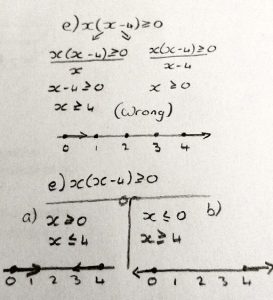 e) x(x-4)≥0
x(x-4)≥0 x(x-4)≥0
x x-4
x-4≥0 x≥0
x≥4 (Wrong)
0 1 2 3 4
e) x(x-4)≥0
a) x≥0 x≤0 b)
x≤4 x≥4
0 1 2 3 4 0 1 2 3 4